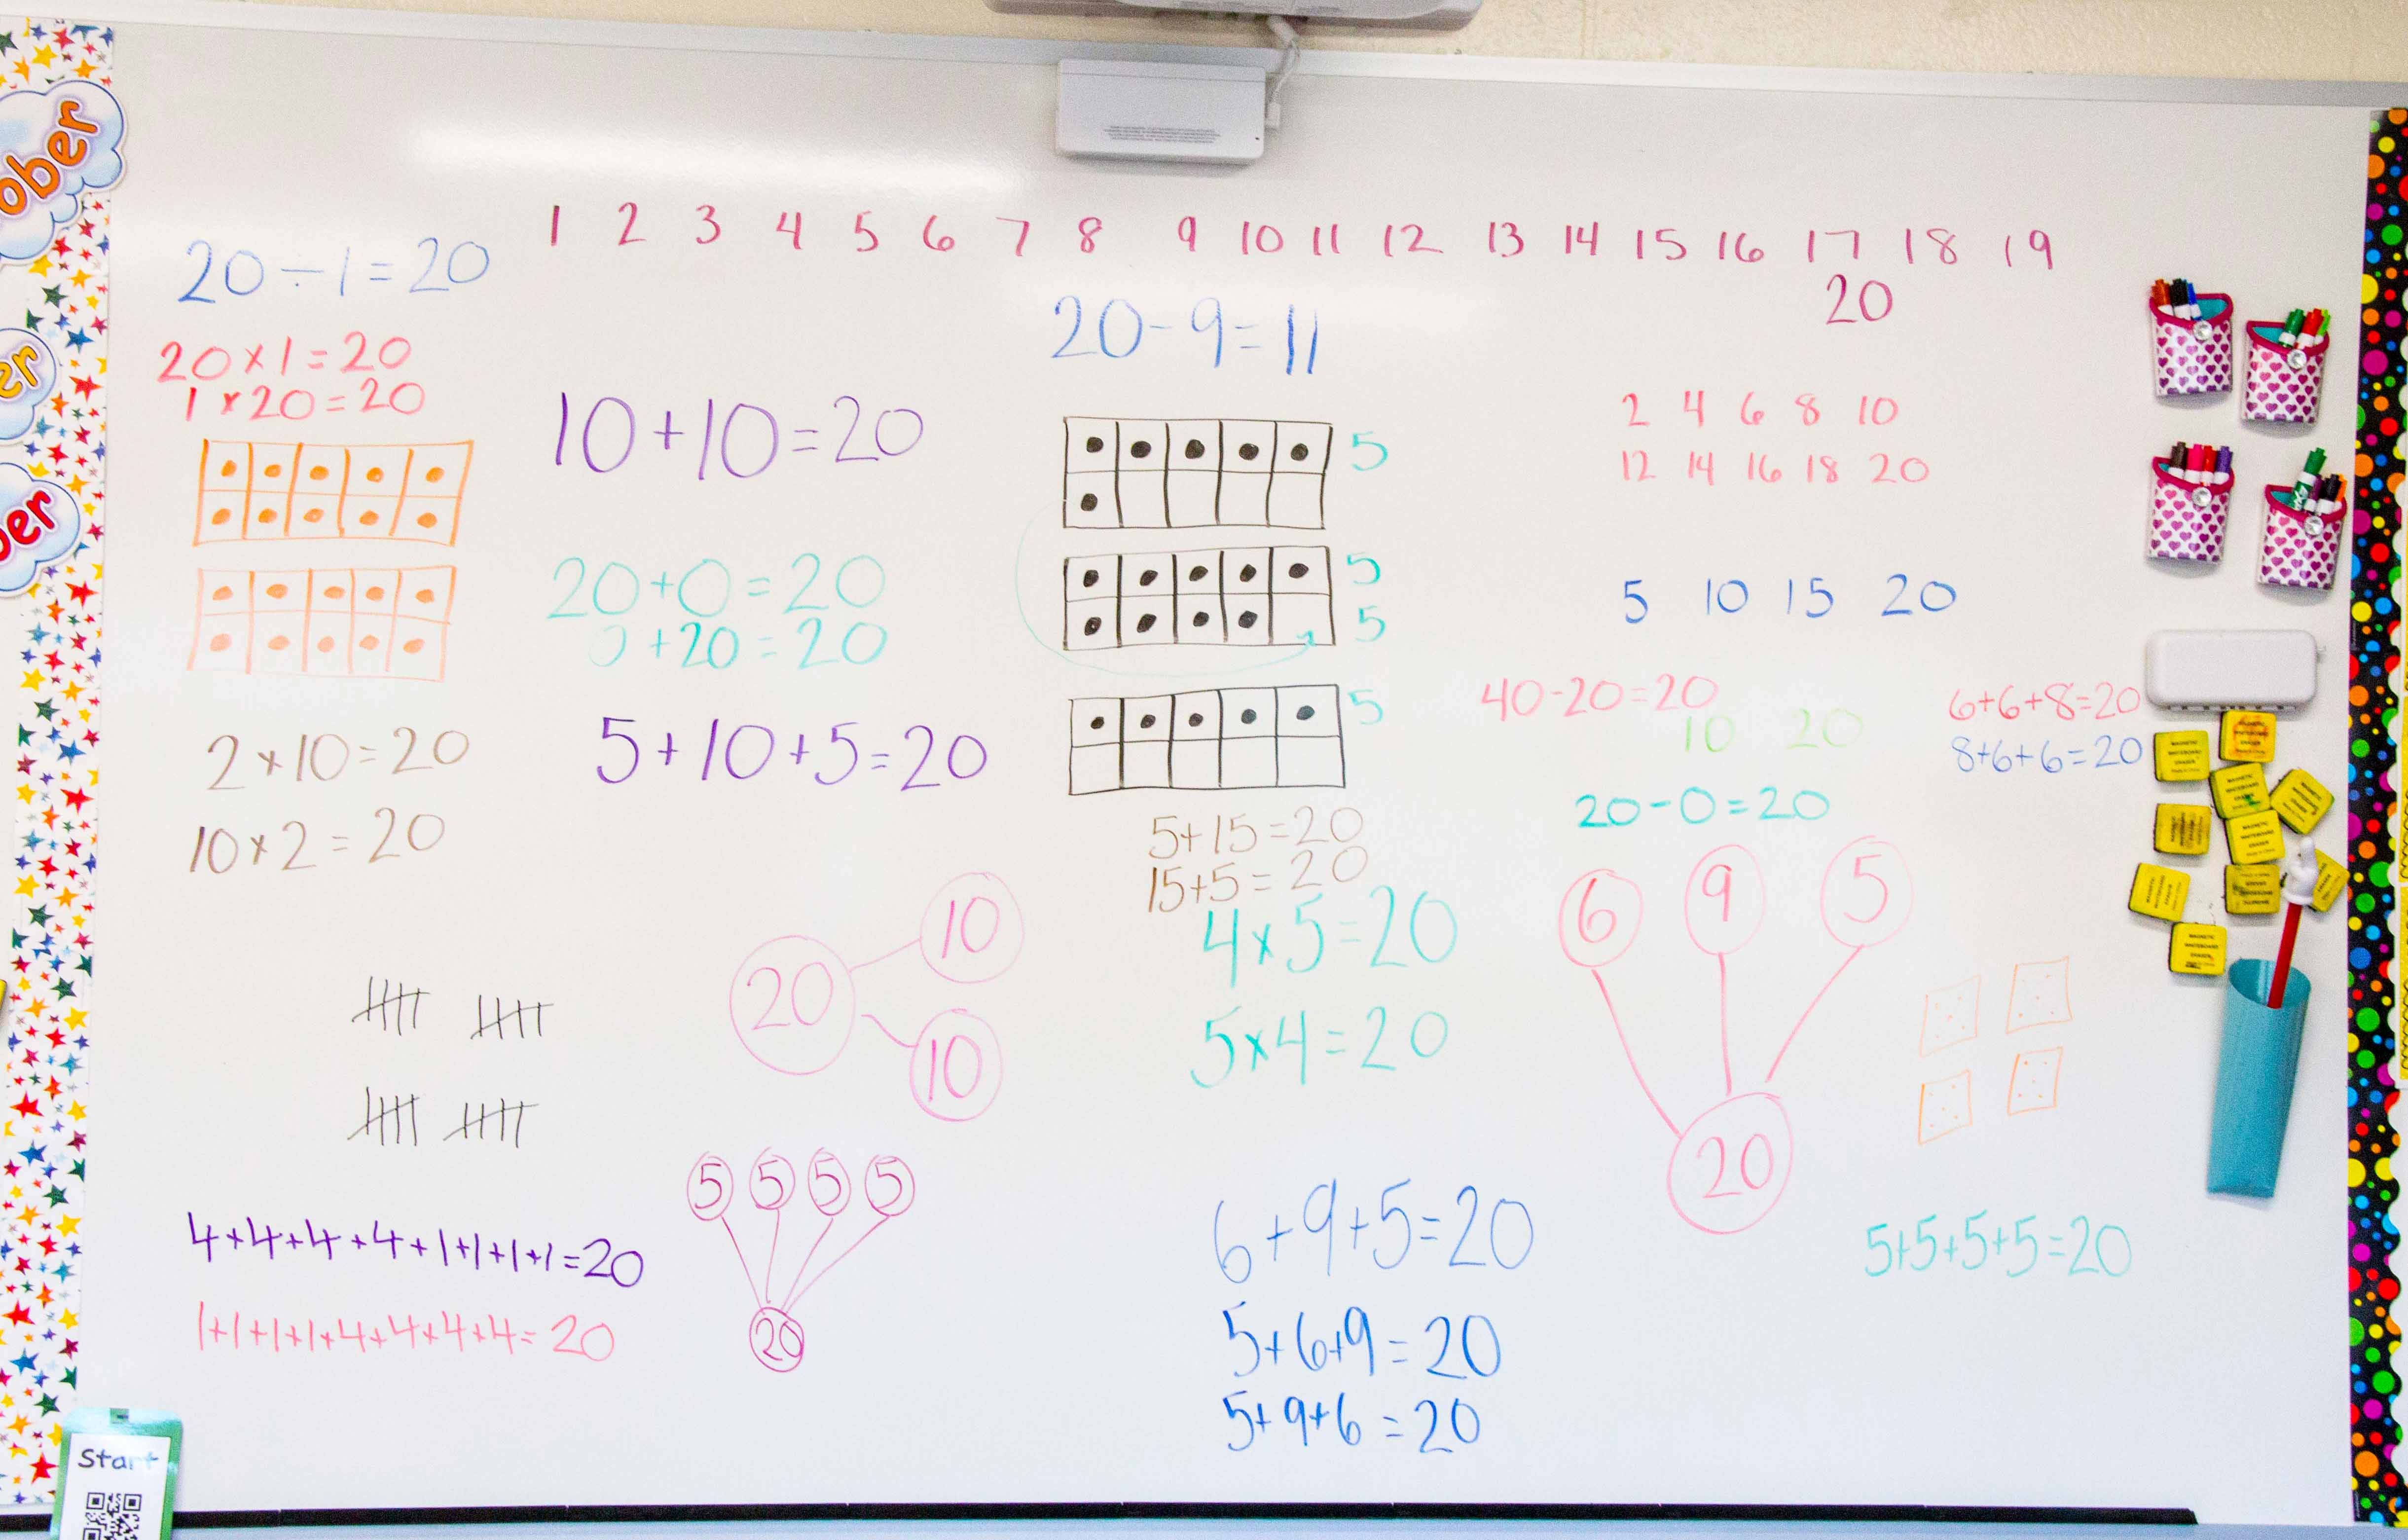 ober
er
ber
1 2 3 4 5 6 7 8 9 10 11 12 13 14 15 16 17 18 19
20
20÷1=20
20×1=20
1×20=20
2×10=20
10×2=20
10+10=20
20+0=20
0+20=20
5+10+5=20
20-9=11
5
5
5
5
5+15=20
15+5=20
4×5=20
5×4=20
2 4 6 8 10
12 14 16 18 20
5 10 15 20
40-20=20
10 20
20-0=20
6+6+8=20
8+6+6=20
6 9 5
20
20
10
10
5 5 5 5
20
4+4+4+4+1+1+1+1=20
1+1+1+1+4+4+4+4=20
6+9+5=20
5+6+9=20
5+9+6=20
5+5+5+5=20
Start